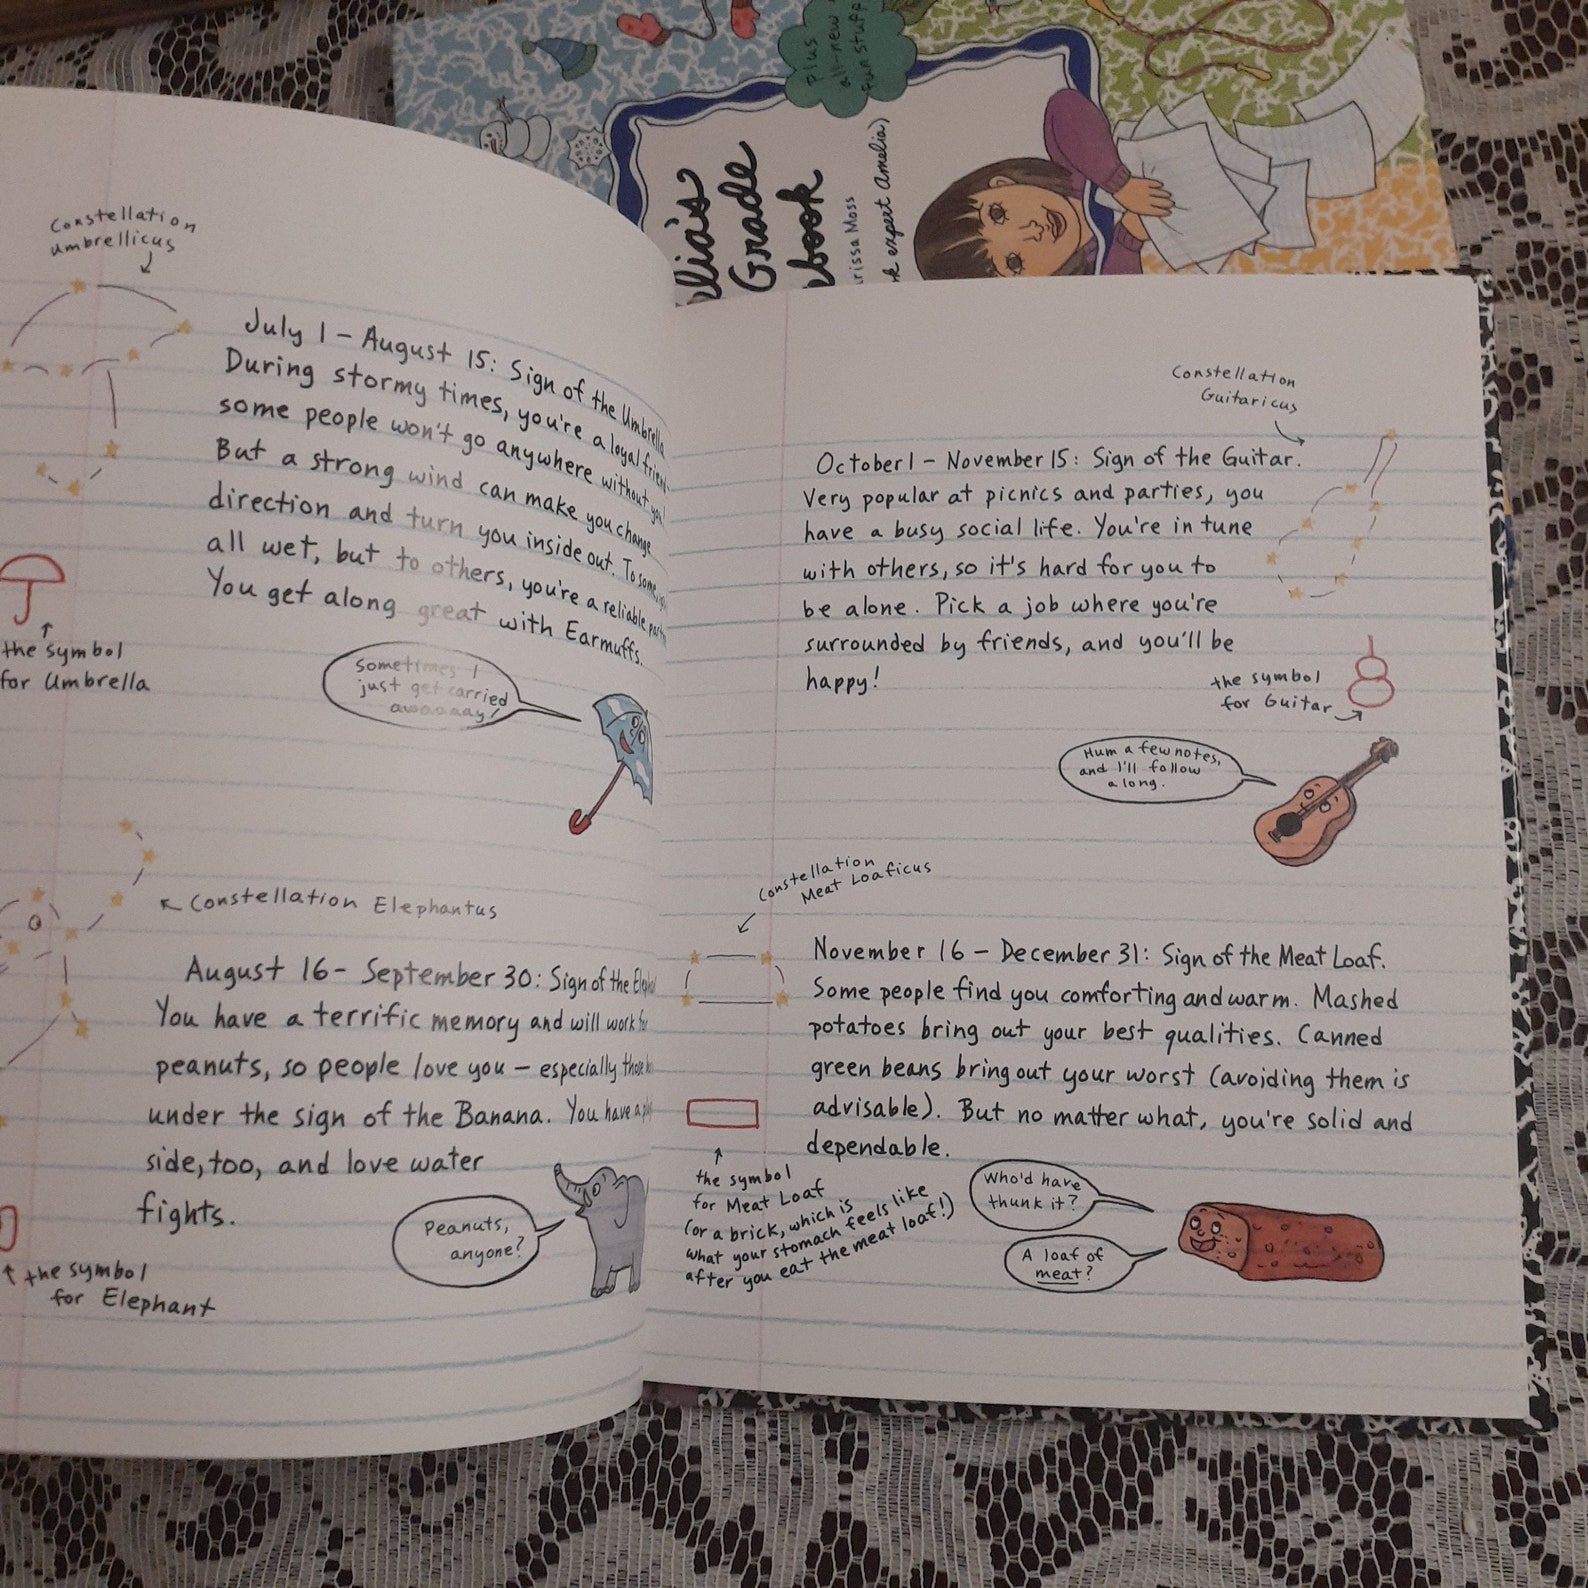 plus
all-new
fun stuff
Grade
rissa Moss
expert Amelia)
Constellation
Umbrellicus
July 1 - August 15: Sign of the Umbrella
During stormy times, you're a loyal friend
some people won't go anywhere without you!
But a strong wind can make you change
direction and turn you inside out. To some,
all wet, but to others, you're a reliable
You get along great with Earmuffs.
the symbol
for Umbrella
Sometimes I
just get carried
awaaaay!
Constellation Elephantus
August 16 - September 30: Sign of the
You have a terrific memory and will work for
peanuts, so people love you - especially those
under the sign of the Banana. You have a
side, too, and love water
fights.
the symbol
for Elephant
Peanuts,
anyone?
Constellation
Guitaricus
October 1 - November 15: Sign of the Guitar.
Very popular at picnics and parties, you
have a busy social life. You're in tune
with others, so it's hard for you to
be alone. Pick a job where you're
surrounded by friends, and you'll be
happy!
the symbol
for Guitar
Hum a few notes,
and I'll follow
along.
Constellation
Meat Loaficus
November 16 - December 31: Sign of the Meat Loaf.
Some people find you comforting and warm. Mashed
potatoes bring out your best qualities. Canned
green beans bring out your worst (avoiding them is
advisable). But no matter what, you're solid and
dependable.
the symbol
for Meat Loaf
(or a brick, which is
what your stomach feels like
after you eat the meat loaf!)
Who'd have
thunk it?
A loaf of
meat?